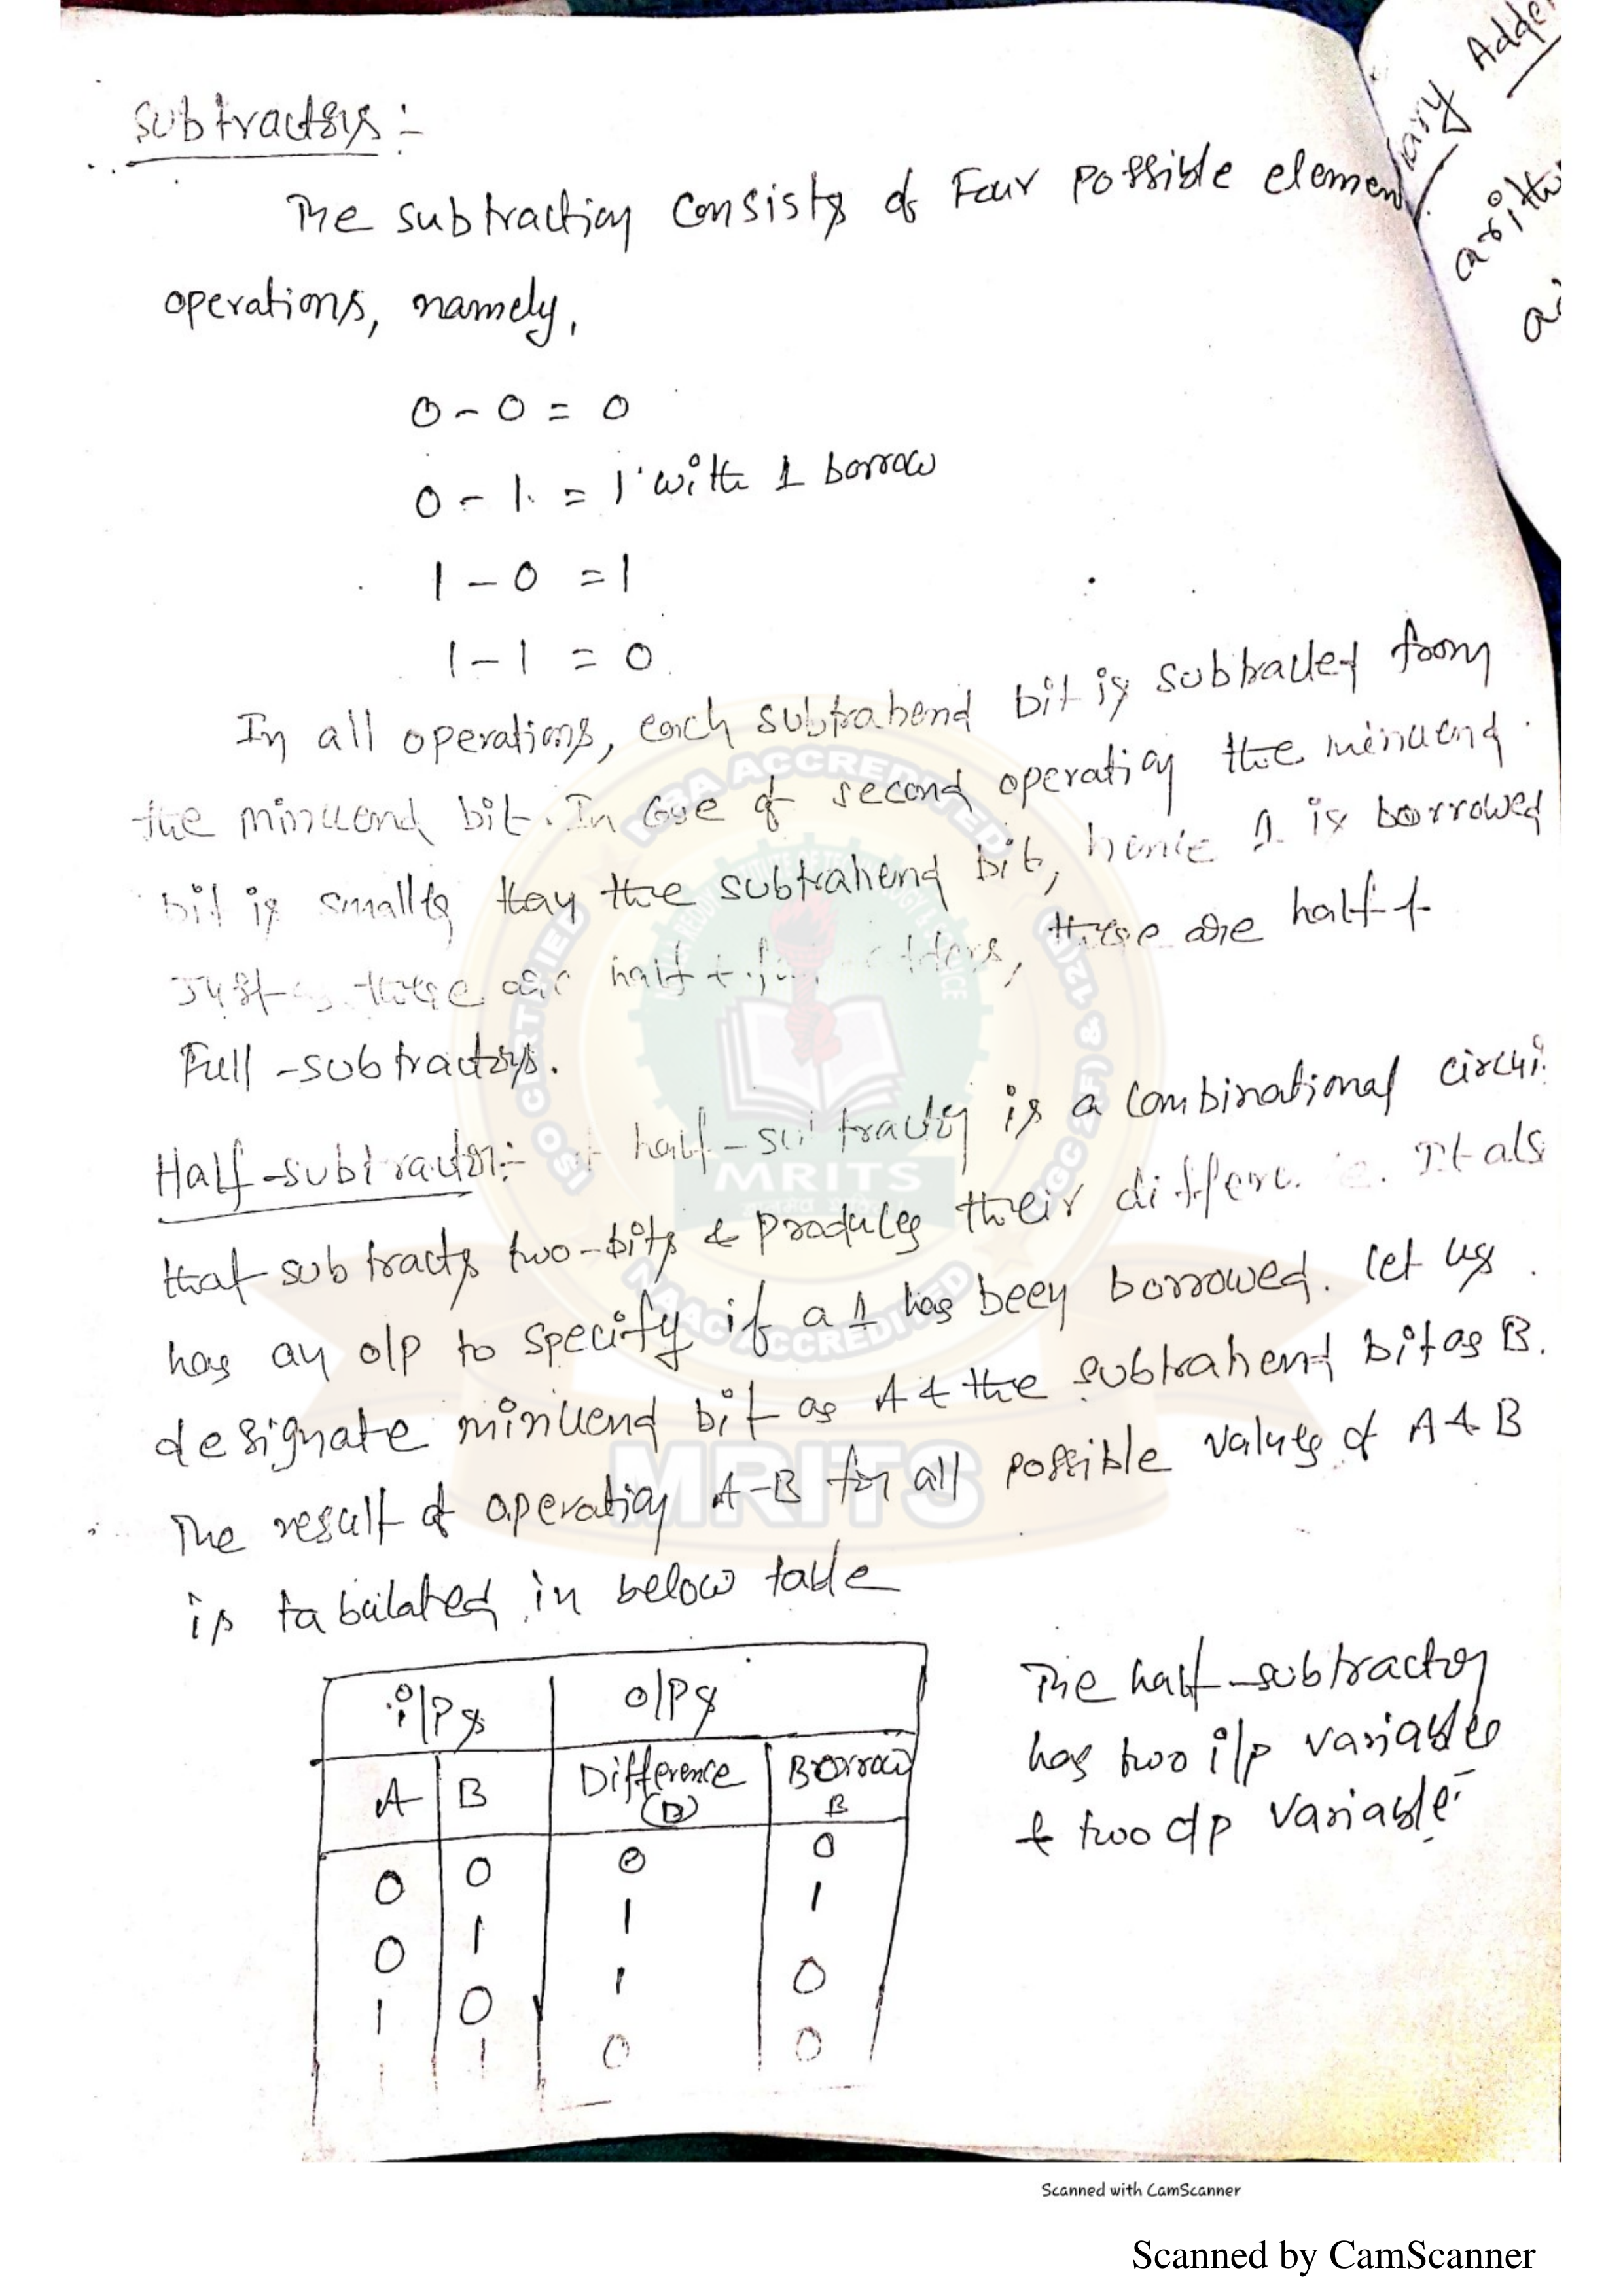 Subtractors :-
The subtraction consists of Four possible elemen
operations, namely,
0 - 0 = 0
0 - 1 = 1 with 1 borrow
1 - 0 = 1
1 - 1 = 0
In all operations, each subtrahend bit is subtracted from
the minuend bit. In case of second operation the minuend
bit is smaller than the subtrahend bit, hence 1 is borrowed
Just as there are half & full adders, there are half &
Full - subtractors.
Half - subtractor :- A half - subtractor is a combinational circui
that subtracts two - bits & produces their difference. It als
has an o/p to specify if a 1 has been borrowed. let us
designate minuend bit as A & the subtrahend bit as B.
The result of operation A - B for all possible values of A & B
is tabulated in below table
i/Ps o/Ps
A B Difference (D) Borrow B
0 0 0 0
0 1 1 1
1 0 1 0
1 1 0 0
The half - subtractor
has two i/p variables
& two o/p variable
ary Adder
arith
a
NBA ACCREDITED
CERTIFIED
MRITS
NAAC ACCREDITED
MRITS
Scanned with CamScanner
Scanned by CamScanner